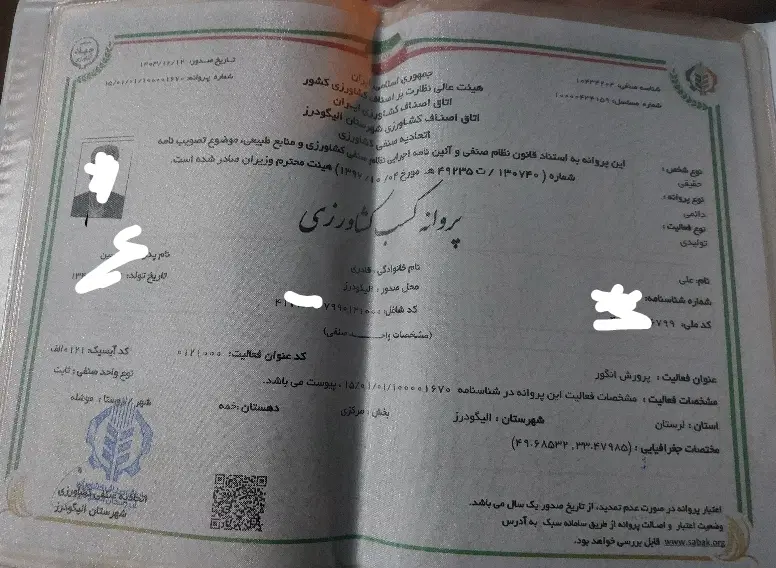 تاریخ صدور: ۱۴۰۳/۱۲/۱۲
شماره پروانه: ۱۵/۰۱/۰۱/۱۰۰۰۰۱۶۷۰
شناسه صنفی: ۱۰۴۳۴۲۰۴
شماره مسلسل: ۱۰۰۰۰۴۳۴۰۵۶
جمهوری اسلامی ایران
هیئت عالی نظارت بر اصناف کشاورزی کشور
اتاق اصناف کشاورزی ایران
اتاق اصناف کشاورزی شهرستان الیگودرز
اتحادیه صنفی کشاورزی
این پروانه به استناد قانون نظام صنفی و آئین نامه اجرایی نظام صنفی کشاورزی و منابع طبیعی، موضوع تصویب نامه
شماره (۱۳۰۷۴۰ / ت ۴۹۲۳۵ هـ مورخ ۰۴ / ۱۰ / ۱۳۹۲) هیئت محترم وزیران صادر شده است.
نوع شخص :
حقیقی
نوع پروانه :
دائمی
نوع فعالیت :
تولیدی
پروانه کسب کشاورزی
نام: علی
نام خانوادگی: قادری
نام پدر:
شماره شناسنامه:
محل صدور: الیگودرز
تاریخ تولد:
کد ملی:
کد شاغل:
(مشخصات واحد صنفی)
عنوان فعالیت : پرورش انگور
کد عنوان فعالیت: ۰۱۲۱۰۰۰
کد آیسیک: ۰۱۲۱الف
مشخصات فعالیت : مشخصات فعالیت این پروانه در شناسنامه ۱۵/۰۱/۰۱/۱۰۰۰۰۱۶۷۰ پیوست می باشد.
نوع واحد صنفی : ثابت
استان : لرستان
شهرستان : الیگودرز
بخش : مرکزی
دهستان: خمه
شهر / روستا: موشله
مختصات جغرافیایی : (۴۹.۶۸۵۳۲ ,۳۳.۴۷۹۸۵)
اتحادیه صنفی کشاورزی
شهرستان الیگودرز
اعتبار پروانه در صورت عدم تمدید، از تاریخ صدور یک سال می باشد.
وضعیت اعتبار و اصالت پروانه از طریق سامانه سبک به آدرس
www.sabak.org قابل بررسی خواهد بود.